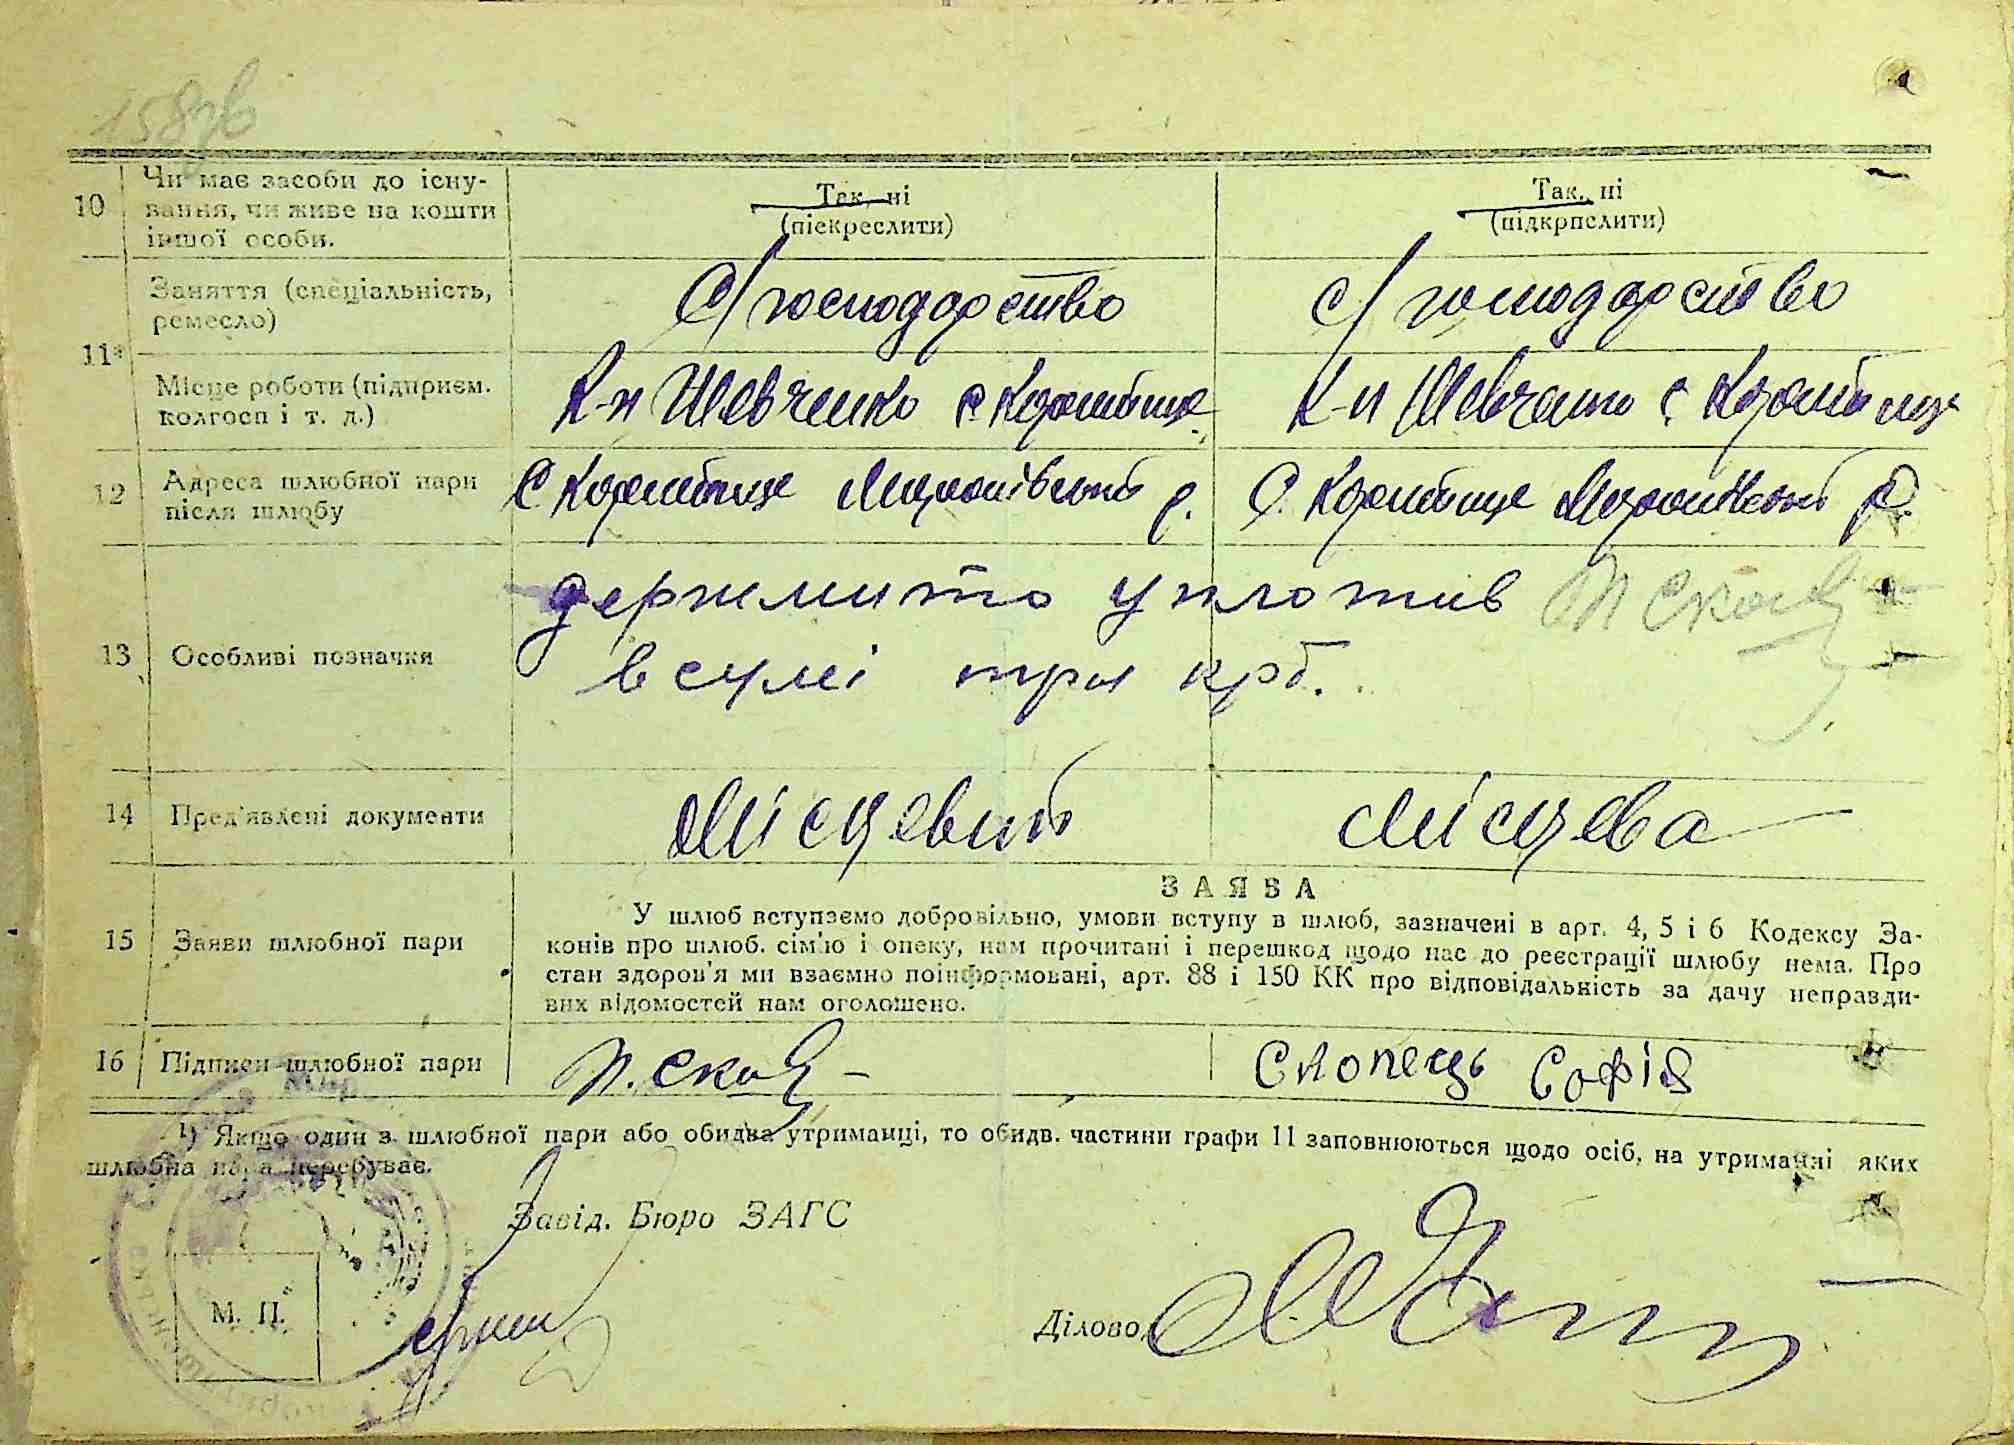 158зв
10 Чи має засоби до існу-
вання, чи живе на кошти
іншої особи.
Так, ні
(піекреслити)
Так, ні
(підкрпслити)
11*
Заняття (спеціальність,
ремесло)
С/господарство
с/господарство
Місце роботи (підприєм.
колгосп і т. д.)
К-п Шевченко с Коритище
К-п Шевченко с Коритище
12 Адреса шлюбної пари
після шлюбу
С Коритище Миронівський р.
С. Коритище Миронівський р.
13 Особливі позначки
держмито уплотив
П Скоп
в сумі три крб.
14 Пред'явлені документи
Місцевий
Місцева
ЗАЯВА
15 Заяви шлюбної пари
У шлюб вступаємо добровільно, умови вступу в шлюб, зазначені в арт. 4, 5 і 6 Кодексу За-
конів про шлюб. сім'ю і опеку, нам прочитані і перешкод щодо нас до реєстрації шлюбу нема. Про
стан здоров'я ми взаємно поінформовані, арт. 88 і 150 КК про відповідальність за дачу неправди-
вих відомостей нам оголошено.
16 Підписи шлюбної пари
П. Скоп
Скопець Софія
¹) Якщо один з шлюбної пари або обидва утриманці, то обидв. частини графи 11 заповнюються щодо осіб, на утриманні яких
шлюбна пара перебуває.
Завід. Бюро ЗАГС
М. П.
Діловод